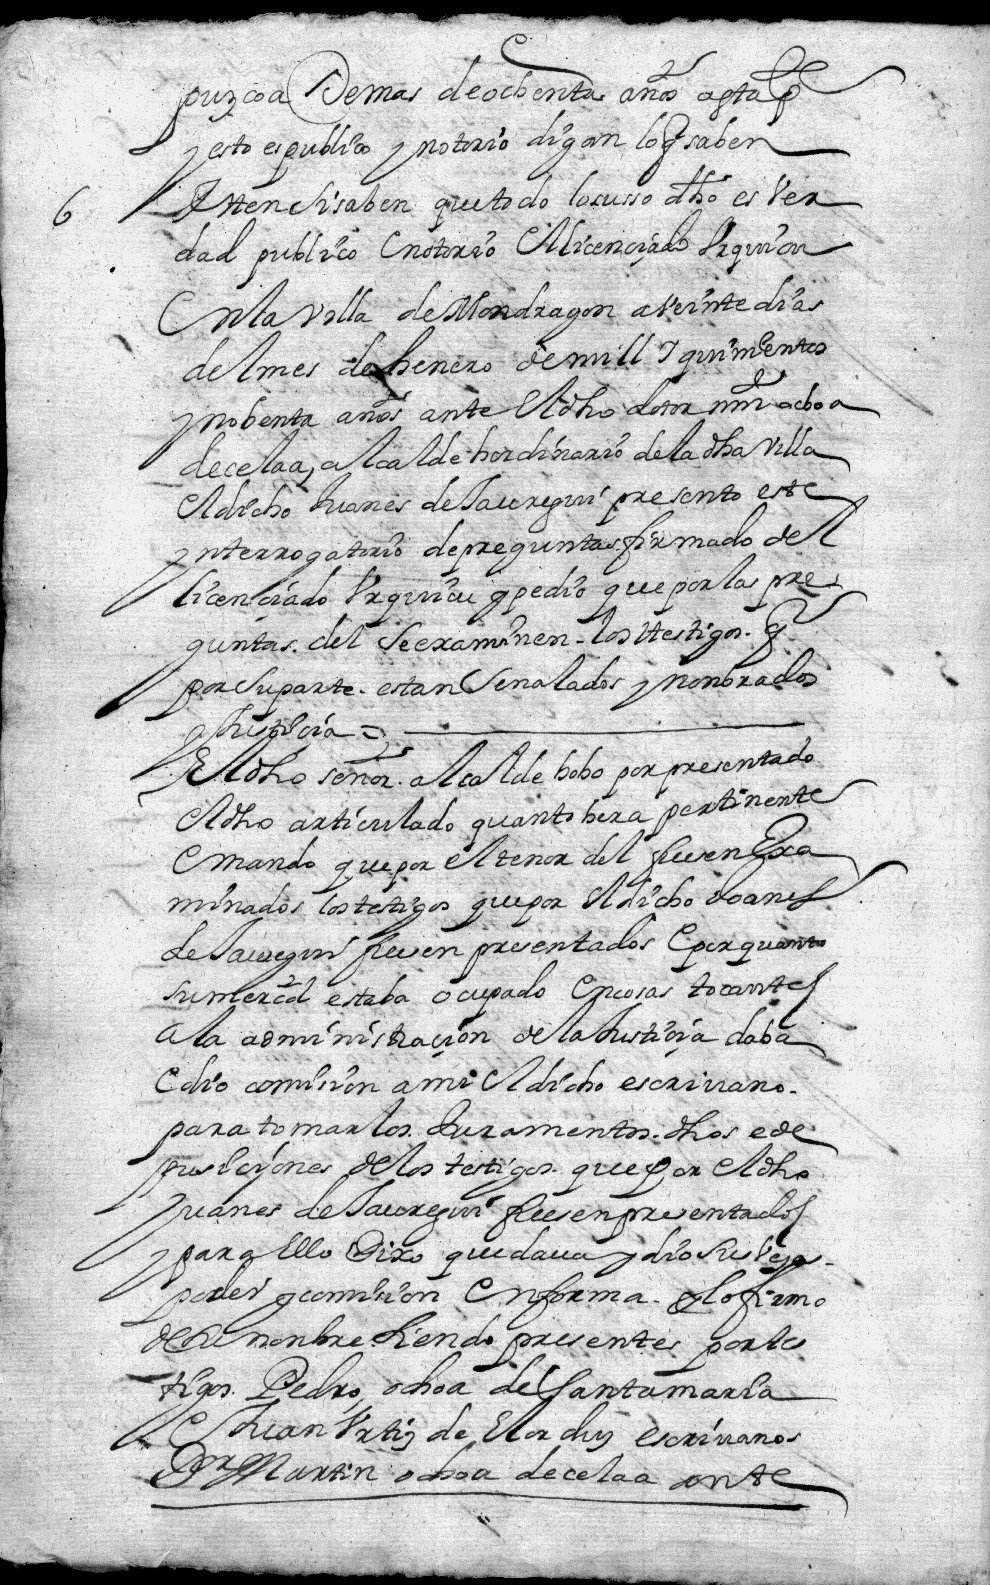 puzcoa Demas deochenta años asta q
y esto es publico y notorio digan lo q saben
6 Ytten si saben que todo lo susso dho es Ver
dad publico E notorio El licenciado Vrquiçu
En la Villa de Mondragon a Veinte dias
del mes de henero de mill y quinientos
y nobenta años ante El dho dotor mrn ochoa
de celaa, alcalde hordinario de la dha Villa
El dicho Juanes de Jauregui presento este
ynterrogatorio de preguntas firmado del
licenciado Vrquiçu y pedio que por las pre
guntas. del se examinen los testigos. q
por su parte. estan señalados y nonbrados
Justicia =
El dho señor. alcalde hobo por presentado
El dho articulado quanto hera pertinente
E mando que por el tenor del fuesen Exa
minados los testigos que por El dicho Joanes
de Jauregui fuesen presentados E por quanto
su merced estaba ocupado En cosas tocantes
a la administraçion de la Justiçia daba
E dio comision a mi El dicho escriuano.
para tomar los. Juramentos. dhos e de
pusiçiones de los testigos. que por El dho
Juanes de Jauregui fuesen presentados
para Ello Dixo que daua y dio sus Vezes.
poder y comision En forma. y lo firmo
de su nonbre siendo presentes por tes
tigos. Pedro ochoa de Santamaria
E Juan Vrtiz de Elorduy escriuanos
Dor Martin ochoa de celaa ante